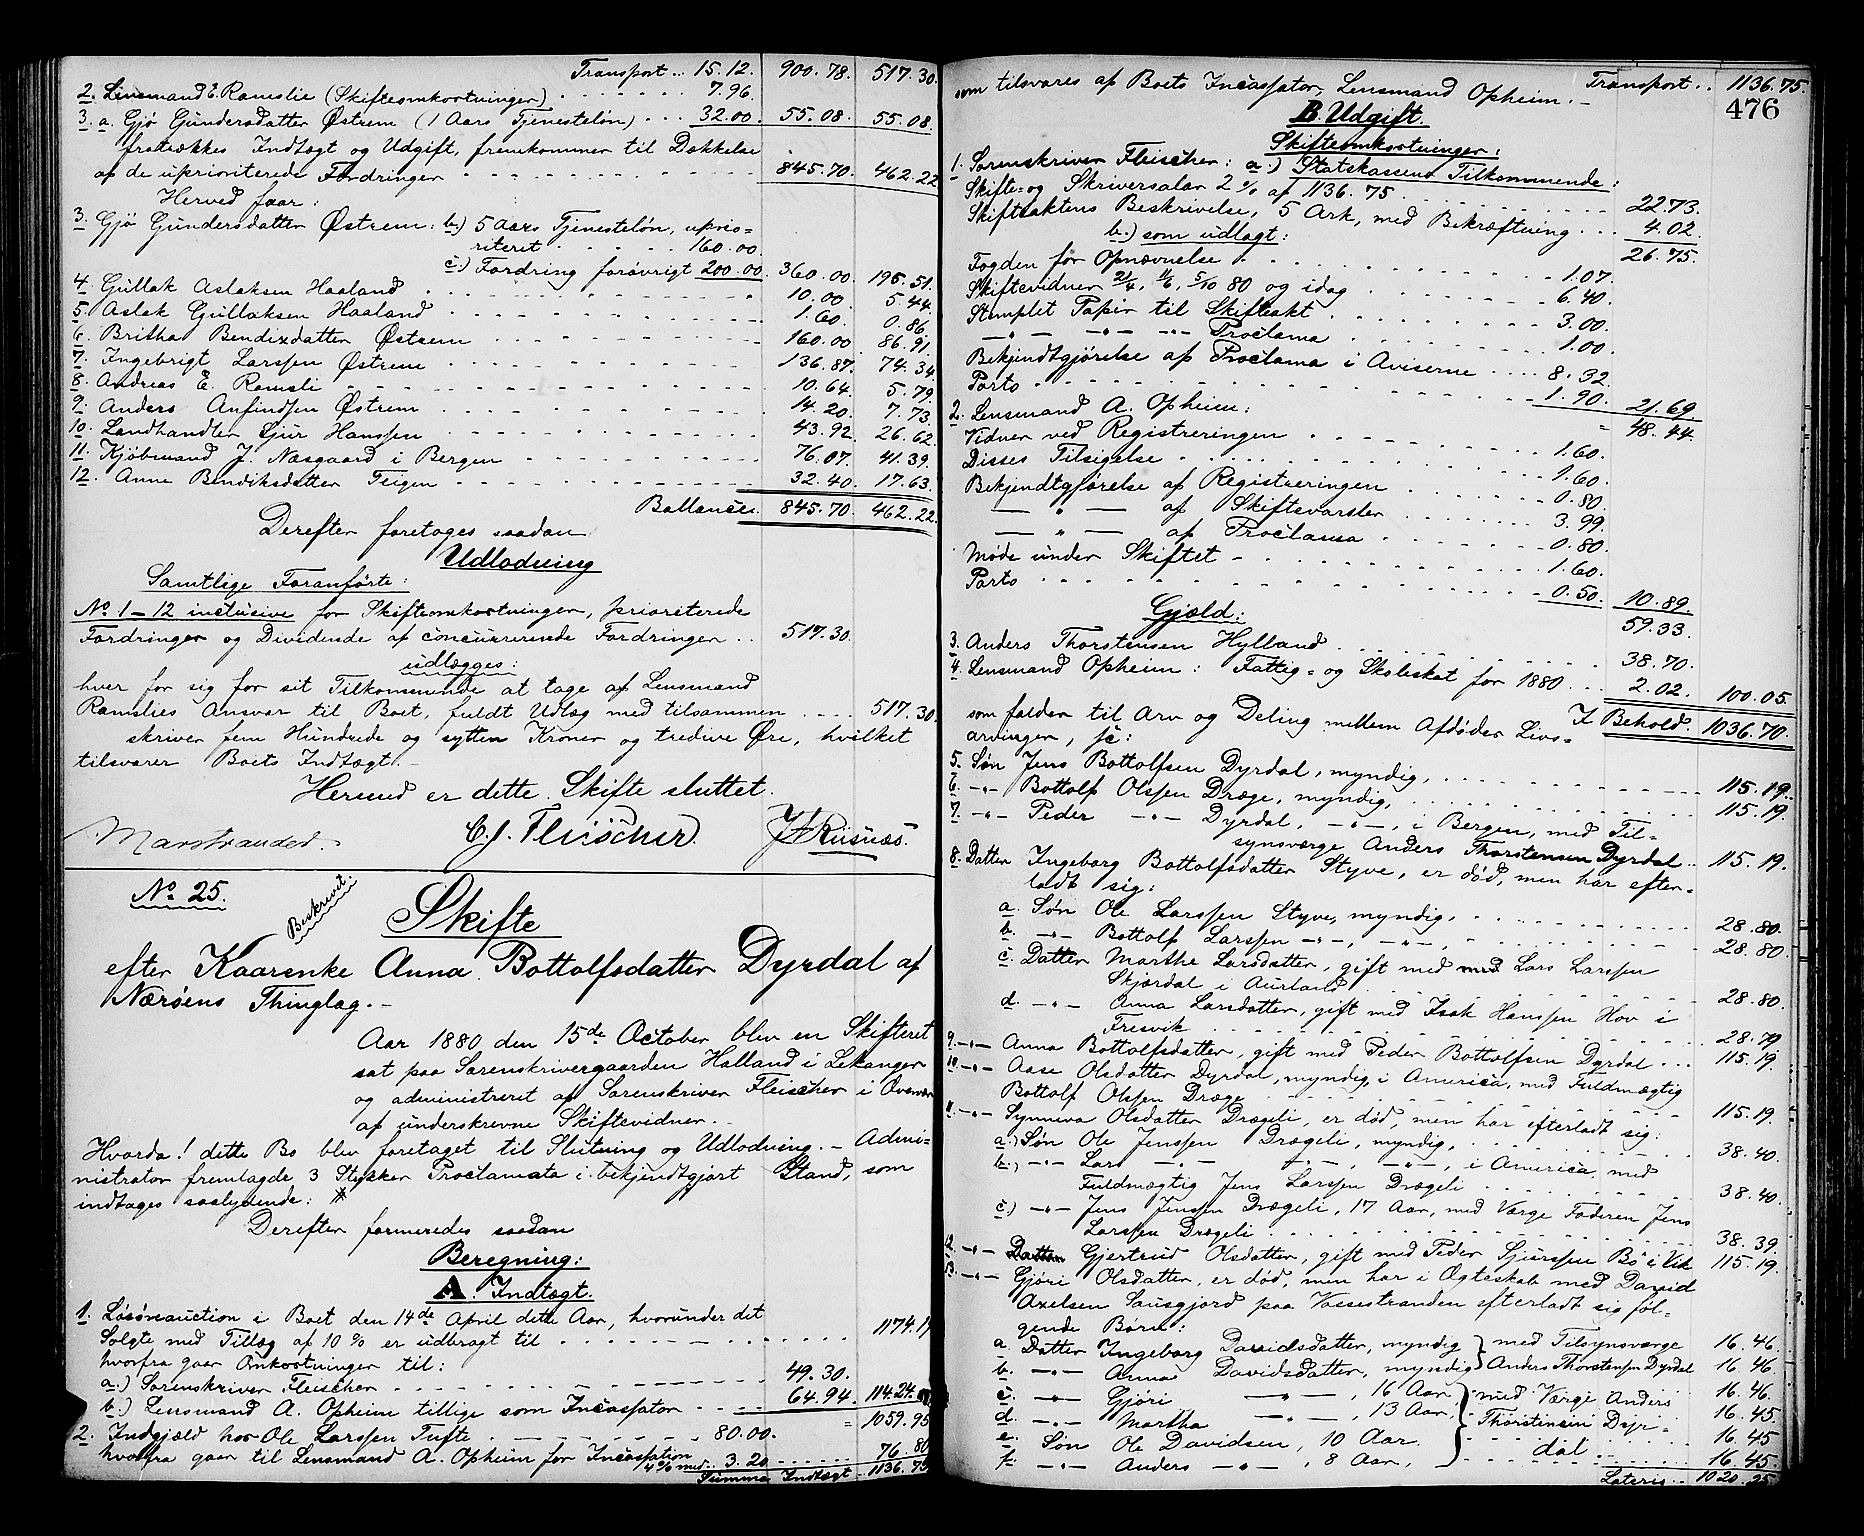 Transport .. 15.12. 900.78. 517.30
2. Lensmand E. Ramslie (Skifteomkostninger) . . . . 7.96.
3. a. Gjø Gundersdatter Østrem (1 Aars Tjenesteløn) . . . 32.00. 55.08. 55.08.
fratrækkes Indtægt og Udgift, fremkommer til Dækkelse
af de uprioriterede Fordringer . . . . 845.70. 462.22
Herved faar:
3. Gjø Gundersdatter Østrem: b.) 5 Aars Tjenesteløn, uprio-
riteret . . . . 160.00.
c.) Fordring forøvrigt 200.00. 360.00. 195.51.
4. Gullak Aslaksen Haaland . . . . 10.00. 5.44.
5. Aslak Gullaksen Haaland . . . . 1.60. 0.86.
6. Britha Bendixdatter Østrem . . . . 160.00. 86.91
7. Ingebrigt Larssen Østrem . . . . 136.87. 74.34
8. Andreas E. Ramsli . . . . 10.64. 5.79
9. Anders Anfindsen Østrem . . . . 14.20. 7.73.
10. Landhandler Sjur Hanssen . . . . 43.92. 26.62
11. Kjøbmand J. Næsgaard i Bergen . . . . 76.07. 41.39.
12. Anne Bendiksdatter Teigen . . . . 32.40. 17.63.
Ballancer. 845.70. 462.22.
Derefter foretoges saadan
Udlodning
Samtlige Foranførte:
No. 1 – 12 inclusive for Skifteomkostninger, prioriterede
Fordringer og Dividende af concurrerende Fordringer . . 517.30.
udlægges:
hver for sig for sit Tilkommende at tage af Lensmand
Ramslies Ansvar til Boet, fuldt Udlæg med tilsammen . . . . 517.30.
skriver fem Hundrede og sytten Kroner og tredive Øre, hvilket
tilsvarer Boets Indtægt. –
Hermed er dette Skifte sluttet.
Marstrander. C. J. Fleischer. Riisnæs.
No. 25.
Beskrevet.
Skifte
efter Kaarenke Anna Bottolfsdatter Dyrdal af
Nærøens Thinglag. –
Aar 1880 den 15de October blev en Skifteret
sat paa Sorenskrivergaarden Halland i Lekanger
og administreret af Sorenskriver Fleischer i Overvær
af underskrevne Skiftevidner. –
Hvorda! dette Bo blev foretaget til Slutning og Udlodning. – Admi-
nistrator fremlagde 3 Stykker Proclamata i bekjendtgjort Stand, som
indtages saalydende: #
Derefter formeredes saadan
Beregning:
A. Indtægt.
1. Løsøreauction i Boet den 14de April dette Aar, hvorunder det
Solgte med Tillæg af 10 % er udbragt til . . . . 1174.19
hvorfra gaar Omkostninger til:
a.) Sorenskriver Fleischer . . . . 49.30.
b.) Lensmand A. Opheim tillige som Incassator . . . . 64.94. 114.24.
" 1059.95
2. Indgjæld hos Ole Larssen Tufte . . . . 80.00.
hvorfra gaar til Lensmand A. Opheim for Incassation
4 % med .. 3.20 76.80
Summa Indtægt . . 1136.75
som tilsvares af Boets Incassator, Lensmand Opheim. – Transport . . 1136.75.
476
B. Udgift.
Skifteomkostninger:
1. Sorenskriver Fleischer: a.) Statskassens Tilkommende:
Skifte- og Skriversalar 2 % af 1136.75 . . . . 22.73.
Skifteaktens Beskrivelse, 5 Ark, med Bekræftning . . . 4.02.
b.) som udlagt: 26.75.
Fogden for Opnævnelse . . . . 1.07.
Skiftevidner 21/4, 11/6, 5/10 80 og idag . . . . 6.40.
Stemplet Papir til Skifteakt . . . . 3.00.
–"– –"– –"– Proclama . . . . 1.00.
Bekjendtgjørelse af Proclama i Aviserne . . . . 8.32.
Porto . . . . 1.90. 21.69
2. Lensmand A. Opheim: " 48.44.
Vidner ved Registreringen . . . . 1.60.
Disses Tilsigelse . . . . 1.60.
Bekjendtgjørelse af Registreringen . . . . 0.80.
— " — af Skiftevarsler . . . . 3.99.
— " — af Proclama . . . . 0.80.
Møde under Skiftet . . . . 1.60.
Porto . . . . 0.50. 10.89.
Gjæld: 59.33.
3. Anders Thorstensen Hylland . . . . 38.70.
4. Lensmand Opheim: Fattig- og Skoleskat for 1880 . . . 2.02. 100.05.
I Behold. 1036.70.
som falder til Arv og Deling mellem Afdødes Livs-
arvinger, sc:
5. Søn Jens Bottolfsen Dyrdal, myndig, . . . . 115.19.
6. –"– Bottolf Olssen Dræge, myndig, . . . . 115.19.
7. –"– Peder –"– Dyrdal, –"–, i Bergen, med Til-
synsværge Anders Thorstensen Dyrdal . . 115.19.
8. Datter Ingeborg Bottolfsdatter Styve, er død, men har efter-
ladt sig:
a. Søn Ole Larssen Styve, myndig, . . . . 28.80.
b. –"– Bottolf Larssen –"–, –"–, . . . . 28.80.
c. Datter Marthe Larsdatter, gift med med Lars Larssen
Skjerdal i Aurland . . . . 28.80.
d. –"– Anna Larsdatter, gift med Isak Hanssen Hov i
Fresvik . . . . 28.79
9. –"– Anna Bottolfsdatter, gift med Peder Bottolfsen Dyrdal . . . 115.19.
10. –"– Aase Olsdatter Dyrdal, myndig, i America, med Fuldmægtig
Bottolf Olssen Dræge . . . . 115.19.
11. –"– Synneva Olsdatter Drægeli, er død, men har efterladt sig:
a.) Søn Ole Jenssen Drægeli, myndig, . . . . 38.40.
b.) –"– Lars –"– –"–, –"–, i America, med
Fuldmægtig Jens Larssen Drægeli . . . . 38.40.
c.) –"– Jens Jenssen Drægeli, 17 Aar, med Værge Faderen Jens
Larssen Drægeli . . . . 38.39
12. –"– Gjertrud Olsdatter, gift med Peder Sjurssen Bø i Vik 115.19.
13. –"– Gjøri Olsdatter, er død, men har i Ægteskab med David
Axelsen Sausgjord paa Vossestranden efterladt sig føl-
gende Børn:
a. Datter Ingeborg Davidsdatter, myndig } med Tilsynsværge 16.46.
b. –"– Anna Davidsdatter, myndig } Anders Thorstensen Dyrdal 16.46
c. –"– Gjøri –"–, 16 Aar } med Værge Anders 16.46
d. –"– Martha –"–, 13 Aar. Thorstensen Dyr- 16.45
e. Søn Ole Davidsen, 10 Aar. dal . . 16.45
f. –"– Anders –"–, 8 Aar, . . . . 16.45.
Lateris . . 1020.25